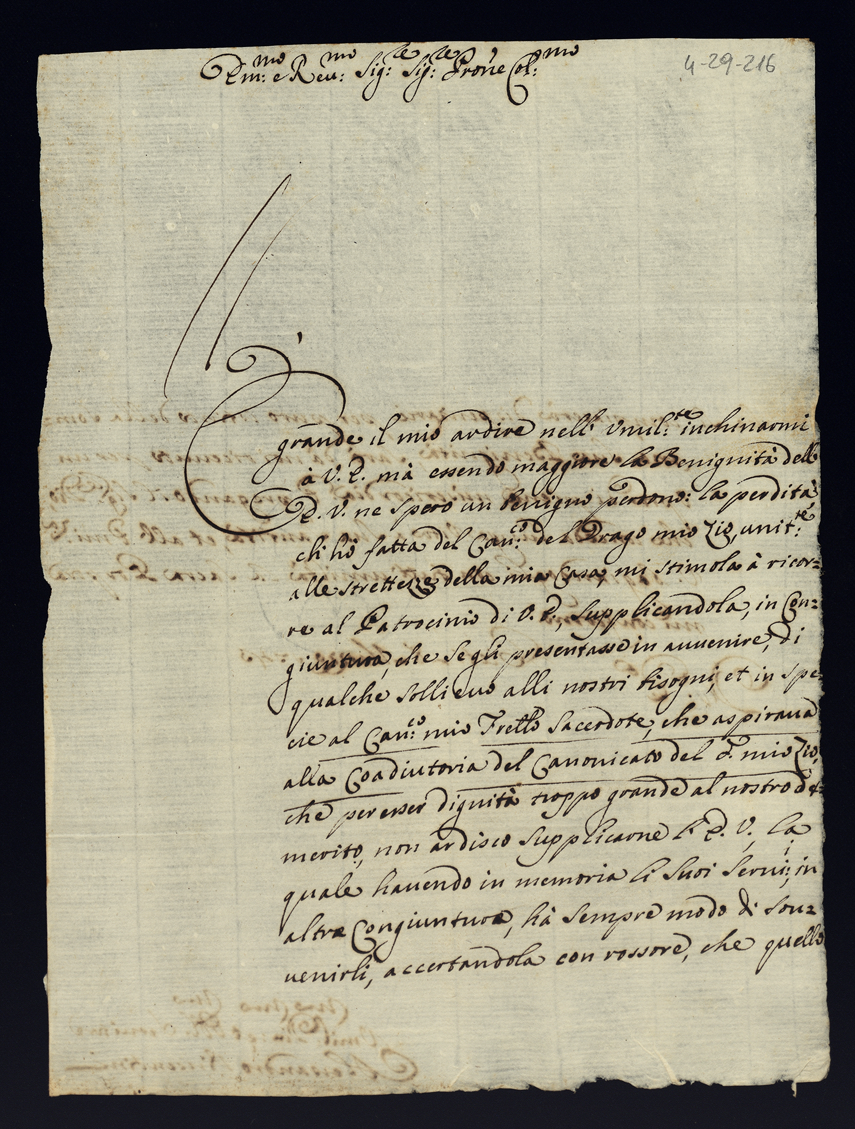 Em:mo e Reu:mo Sig:re Sig:re Prone Col:mo
4-29-216
È
grande il mio ardire nell' vmil:te inchinarmi
à V. E. mà essendo maggiore la Benignità dell'
E. V. ne spero un benigno perdono: la perdita
ch' hò fatta del Cau:co del Drago mio Zio, unit:te
alle strettezze della mia Casa, mi stimola à ricor=
re al Patrocinio di V. E., supplicandola, in Con=
giuntura, che se gli presentasse in auuenire, di
qualche sollieuo alli nostri bisogni, et in spe=
cie al Can:co mio Frello Sacerdote, che aspiraua
alla Coadiutoria del Canonicato del q. mio Zio,
che per esser dignità troppo grande al nostro de=
merito, non ardisco supplicarne l' E. V. la
quale hauendo in memoria li suoi Serui; in
altra Congiuntura, hà sempre modo di sou=
uenirli, accertandola con rossore, che quello